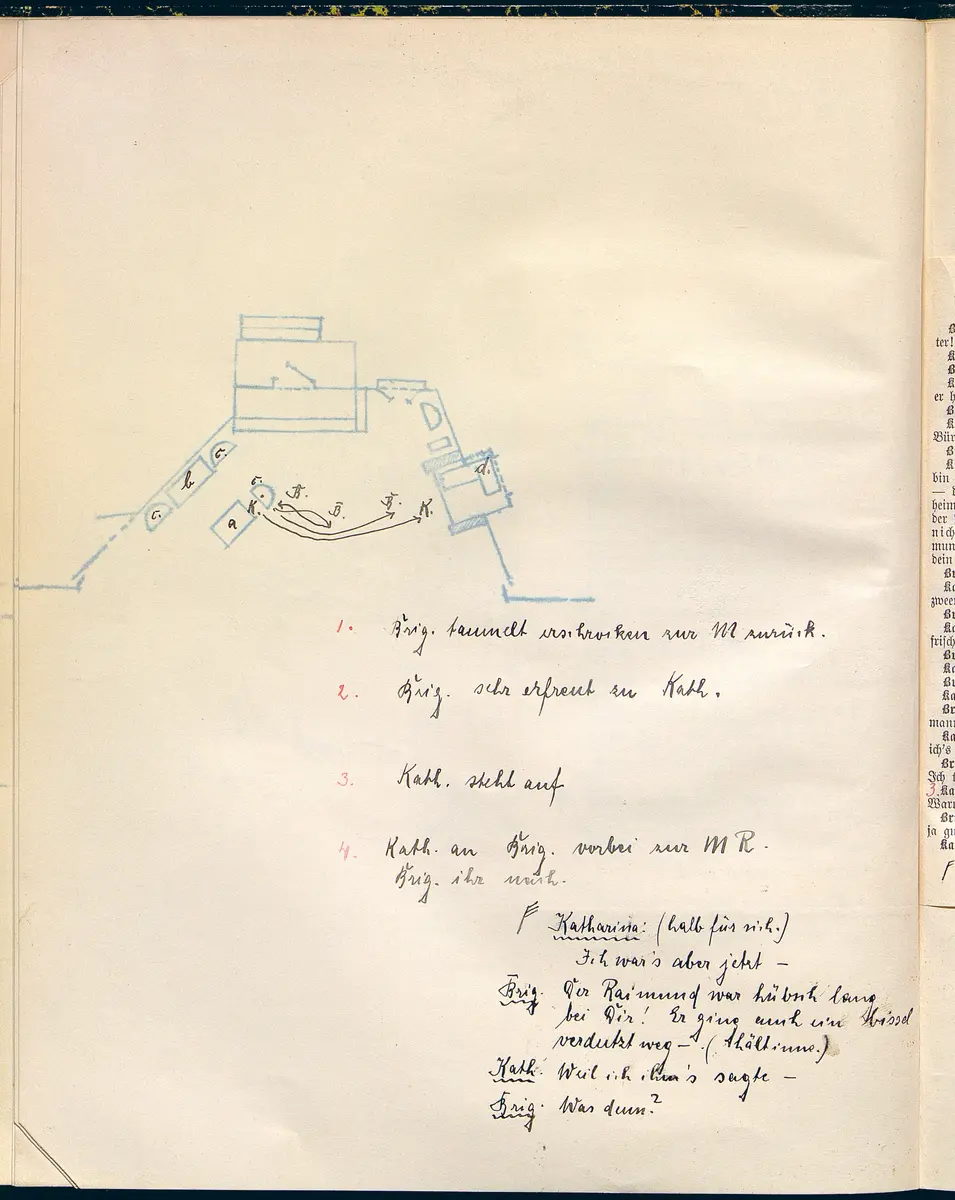 c.
b
c.
c.
K.
B.
B.
B.
K.
a
d.
1. Brig. taumelt erschrocken zur M zurück.
2. Brig. sehr erfreut zu Kath.
3. Kath. steht auf
4. Kath. an Brig. vorbei zur M R.
Brig. ihr nach.
Katharina: (halb für sich.)
Ich war's aber jetzt —
Brig. Der Raimund war hübsch lang
bei Dir! Er ging auch ein bissel
verdutzt weg — (hält inne.)
Kath. Weil ich ihm's sagte —
Brig. Was denn?
B
ter!
K
B
K
er h
B
K
Bür
B
K
bin
—
heim
der
nich
mun
dein
Br
Ka
zwee
Br
Ka
frisch
Br
Ka
Br
Ka
Br
mann
Ka
ich's
Br
Ich
3. Ka
War
Br
ja gu
Ka